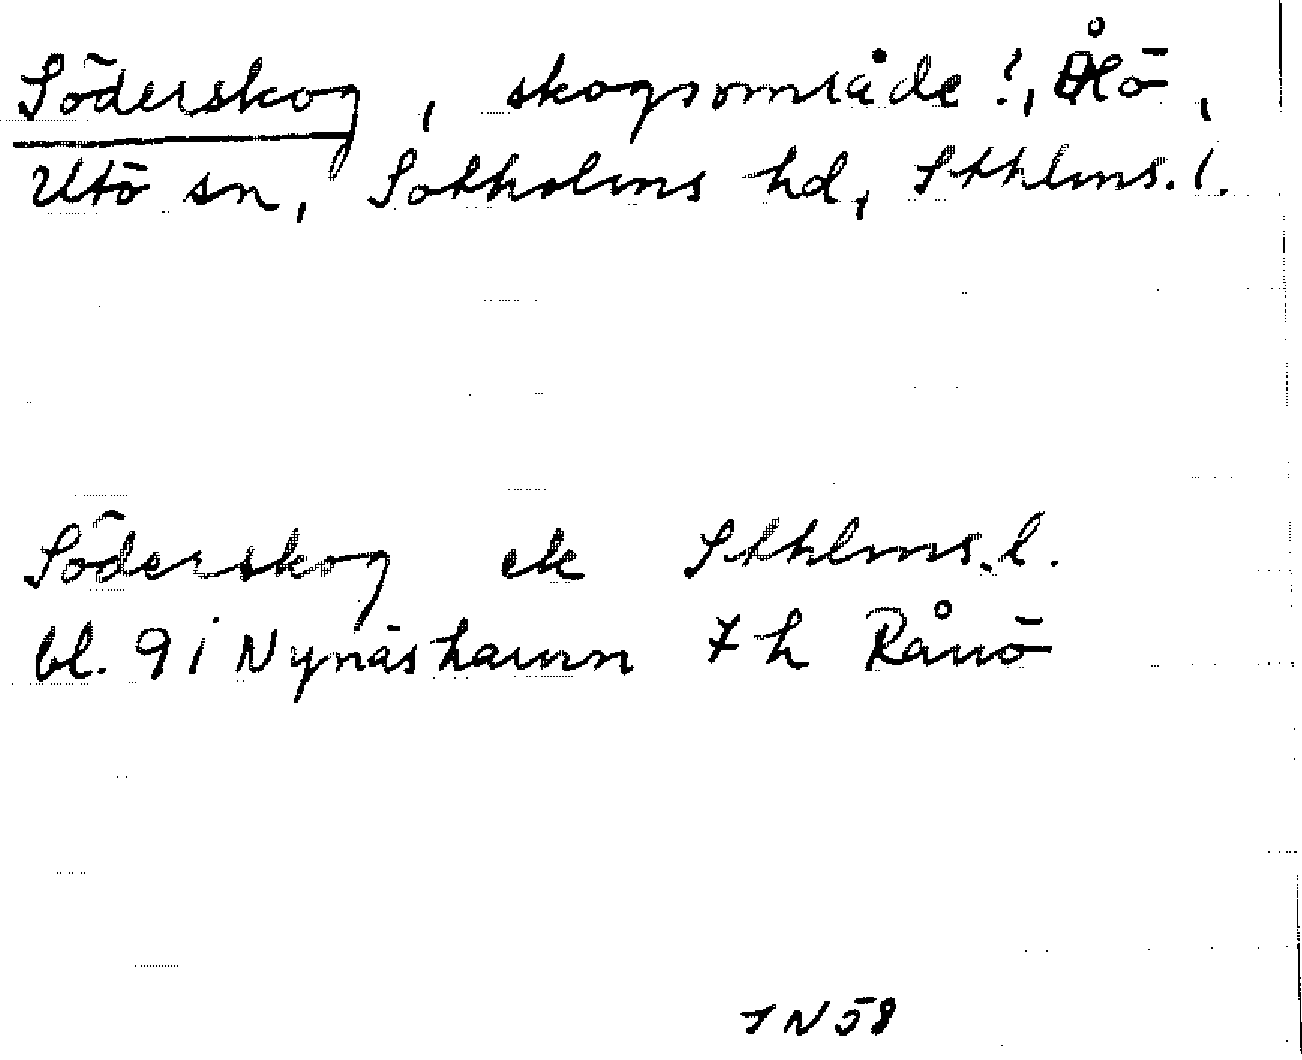 Söderskog, skogsområde!, Ålö,
Utö sn, Sotholms hd, Sthlms.l.
Söderskog ek Sthlms.l.
bl. 9i Nynäshamn 7h Rånö
IN 58